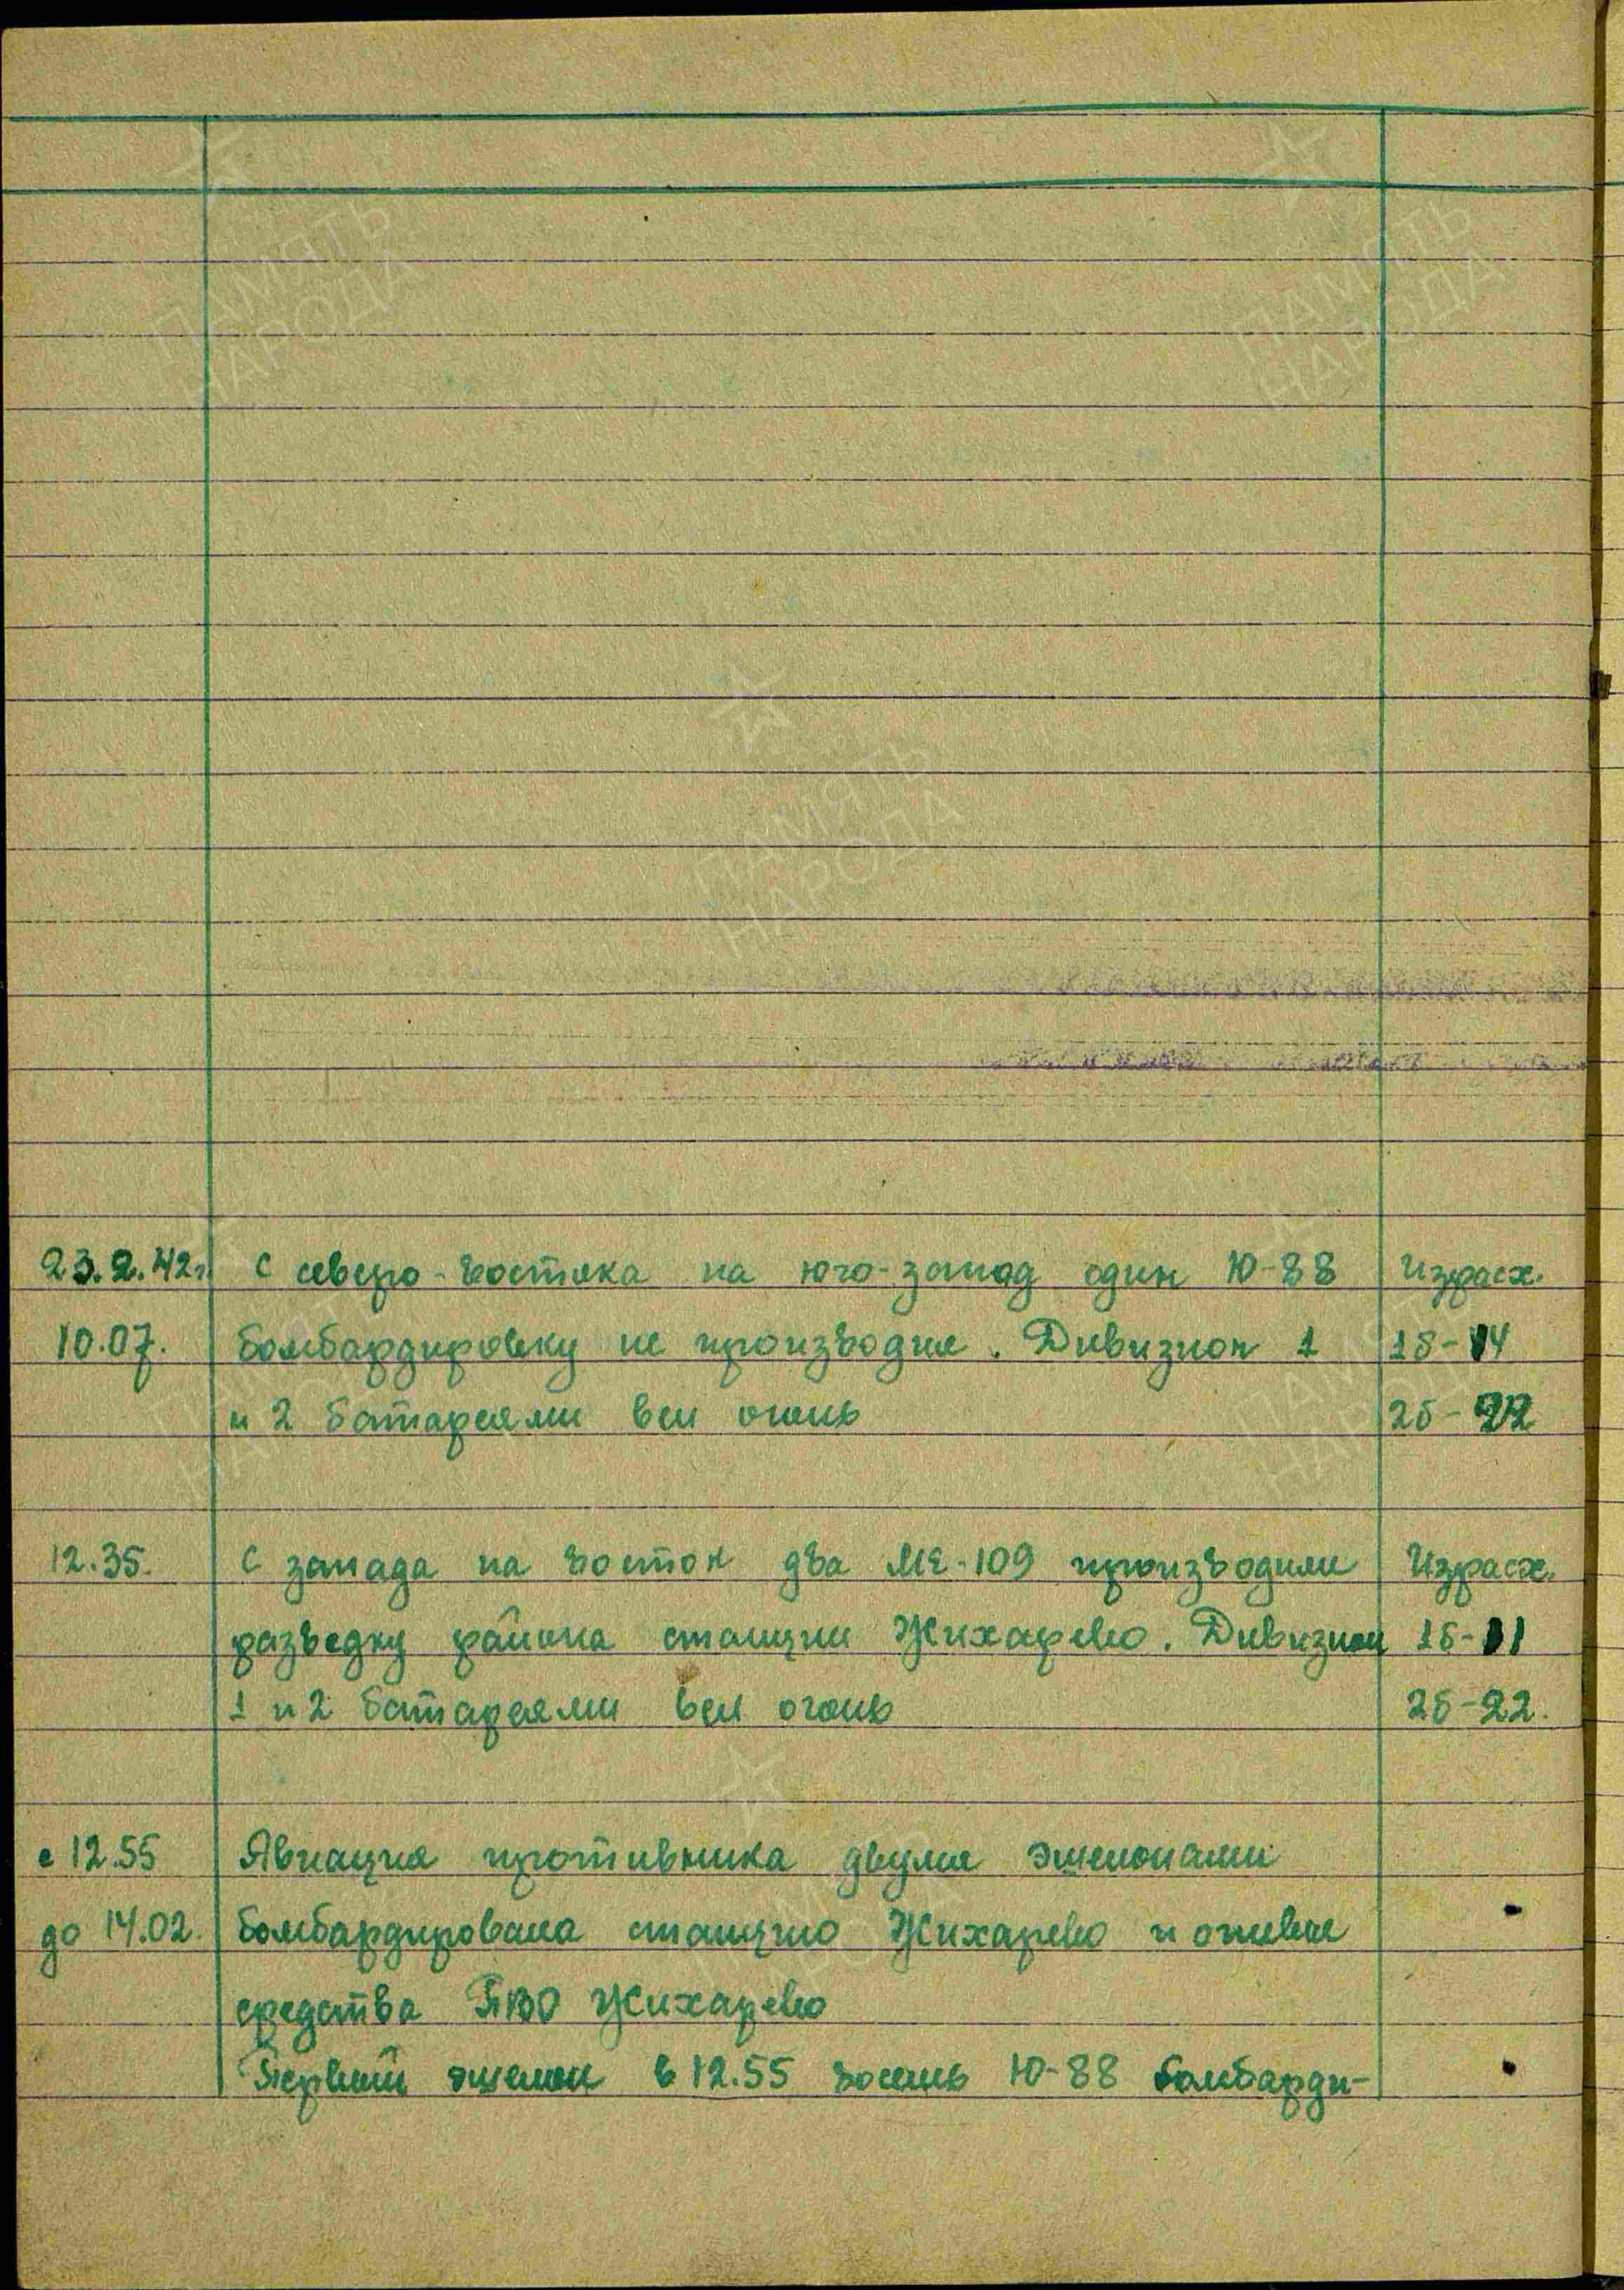 23.2.42г. С северо-востока на юго-запад один Ю-88 Израсх.
10.07. бомбардировку не производил. Дивизион 1 1б-14
и 2 батареями вел огонь 2б-22
12.35. С запада на восток два МЕ-109 производили Израсх.
разведку района станции Жихарево. Дивизион 1б-11
1 и 2 батареями вел огонь 2б-22.
с 12.55 Авиация противника двумя эшелонами
до 14.02. бомбардировала станцию Жихарево и огневые
средства ПВО Жихарево
Первый эшелон в 12.55 восемь Ю-88 бомбарди-
ПАМЯТЬ
НАРОДА